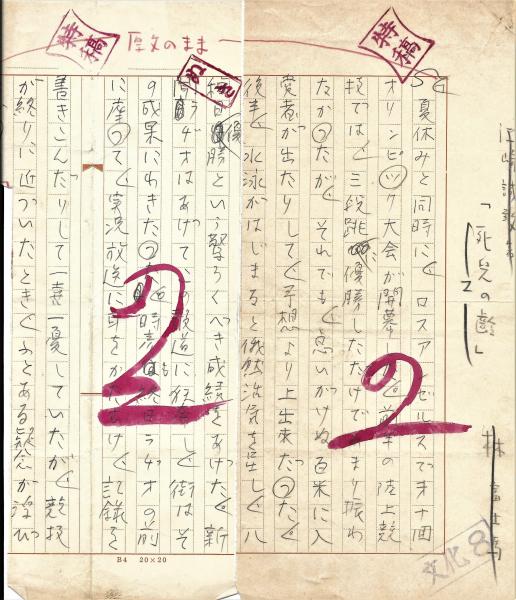 江崎誠致著
「死児の齢」
林富士馬
特稿
原文のまま
特稿
夏休みと同時に、ロスアンゼルスでオ十回
オリンピック大会が開幕 前半の陸上競
技では、三段跳に優勝しただけであまり振わ
なかったが、それでも、思いがけぬ百米に入
賞者が出たりして、予想より上出来だった。
後半、水泳がはじまると俄然活気を呈し、八
種目優勝という驚ろくべき成績をあげた。新
ラヂオはあげて、この報道に狂奔し、街はそ
の成果にわきたった 時 も終日ラヂオの前
に座って、実況放送に耳をかたむけ、記録を
書きこんだりして一喜一憂していたが、競技
が終りに近づいたとき、ふとある疑念が浮び
2
2
文化8
B4 20×20